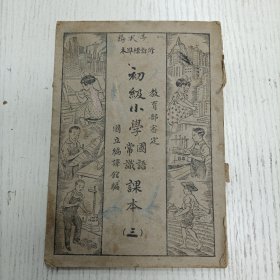 修訂標準本
初級小學
國語
常識
課本
（三）
教育部審定
國立編譯館編